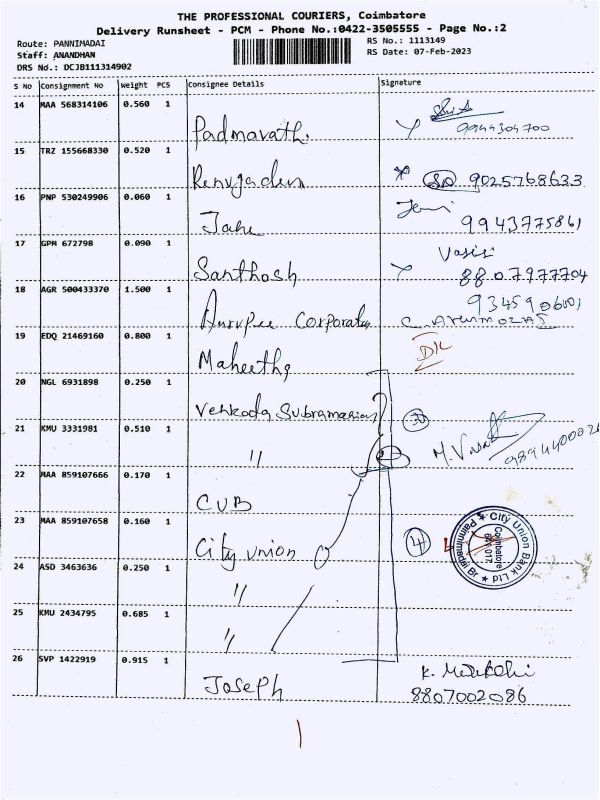 THE PROFESSIONAL COURIERS, Coimbatore
Delivery Runsheet - PCM - Phone No.:0422-3505555 - Page No.:2
Route: PANNIMADAI
RS No.: 1113149
Staff: ANANDHAN
RS Date: 07-Feb-2023
DRS No.: DCJB111314902
S No Consignment No Weight PCS Consignee Details Signature
14 MAA 568314106 0.560 1
Padmavathi 9944304700
15 TRZ 155668330 0.520 1
Renugadevi 9025768633
16 PNP 530249906 0.060 1
Jane 9943775861
17 GPN 672798 0.090 1
Santhosh 8807977704
18 AGR 500433370 1.500 1
Corporation
19 EDQ 21469160 0.800 1
Maheetha
20 NGL 6931898 0.250 1
Venkoda Subramanian
21 KMU 3331981 0.510 1
"
22 MAA 859107666 0.170 1
CUB
23 MAA 859107658 0.160 1
City union
4
City Union Bank Ltd
Pannimadai Br
Coimbatore
641 017
24 ASD 3463636 0.250 1
"
25 KMU 2434795 0.685 1
"
26 SVP 1422919 0.915 1
Joseph
8807002086